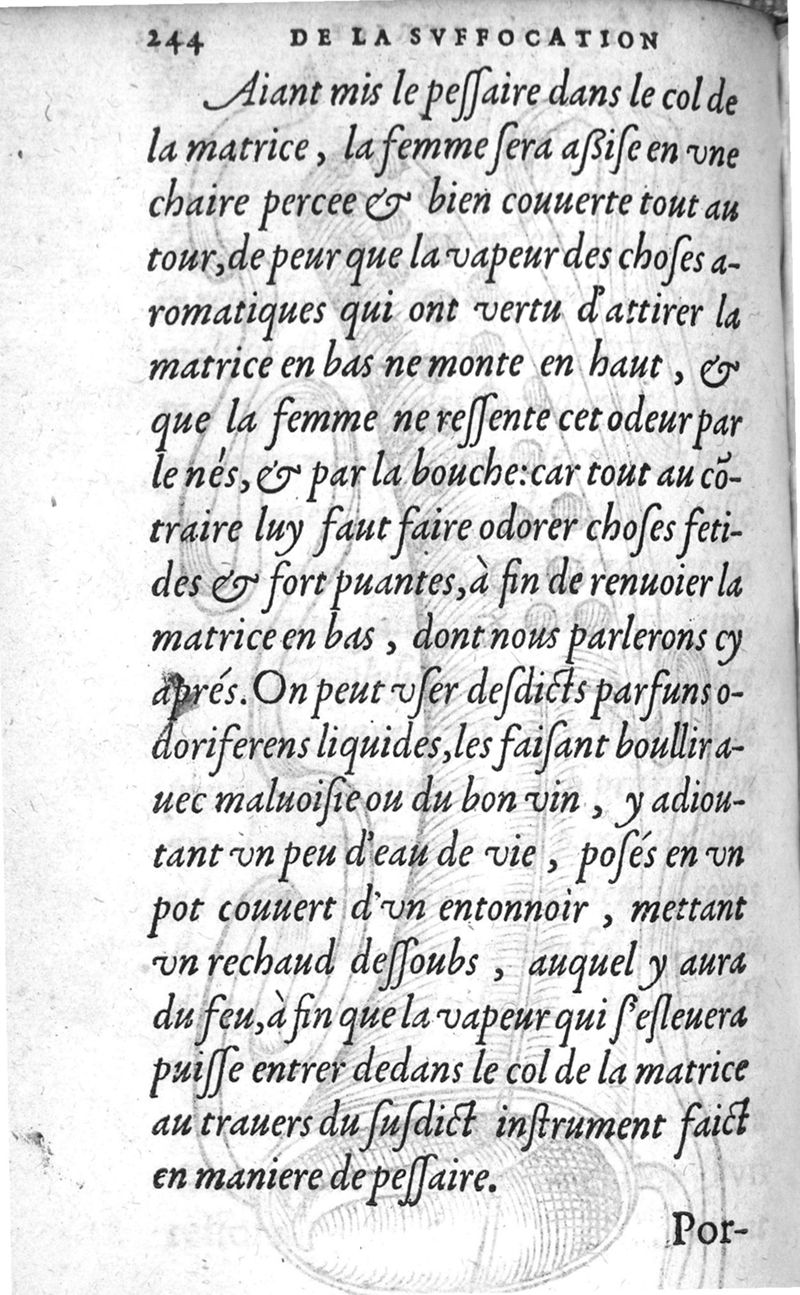 244 DE LA SVFFOCATION
Aiant mis le peſſaire dans le col de
la matrice, la femme ſera aßiſe en vne
chaire percee & bien couuerte tout au
tour, de peur que la vapeur des choſes a-
romatiques qui ont vertu d'attirer la
matrice en bas ne monte en haut, &
que la femme ne reſſente cet odeur par
le nés, & par la bouche: car tout au cõ-
traire luy faut faire odorer choſes feti-
des & fort puantes, à fin de renuoier la
matrice en bas, dont nous parlerons cy
aprés. On peut vſer deſdicts parfuns o-
doriferens liquides, les faiſant boullir a-
uec maluoiſie ou du bon vin, y adiou-
tant vn peu d'eau de vie, poſés en vn
pot couuert d'vn entonnoir, mettant
vn rechaud deſſoubs, auquel y aura
du feu, à fin que la vapeur qui ſ'eſleuera
puiſſe entrer dedans le col de la matrice
au trauers du ſuſdict inſtrument faict
en maniere de peſſaire.
Por-